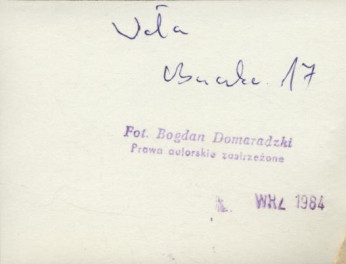 Wola
17
Fot. Bogdan Domaradzki
Prawa autorskie zastrzeżone
WRZ 1984